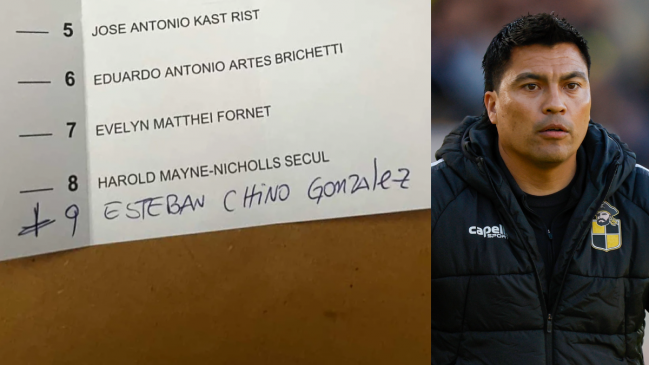 5 JOSE ANTONIO KAST RIST
6 EDUARDO ANTONIO ARTES BRICHETTI
7 EVELYN MATTHEI FORNET
8 HAROLD MAYNE-NICHOLLS SECUL
9 ESTEBAN CHINO GONZALEZ
capelli
SPORT